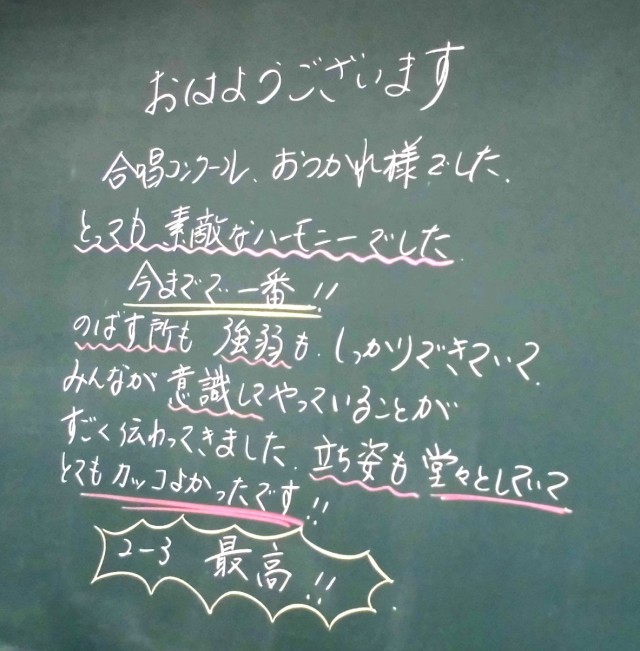 おはようございます
合唱コンクール、おつかれ様でした.
とっても素敵なハーモニーでした.
今までで一番!!
のばす所も強弱も、しっかりできていて、
みんなが意識してやっていることが
すごく伝わってきました. 立ち姿も堂々としていて
とてもカッコよかったです!!
2-3 最高!!